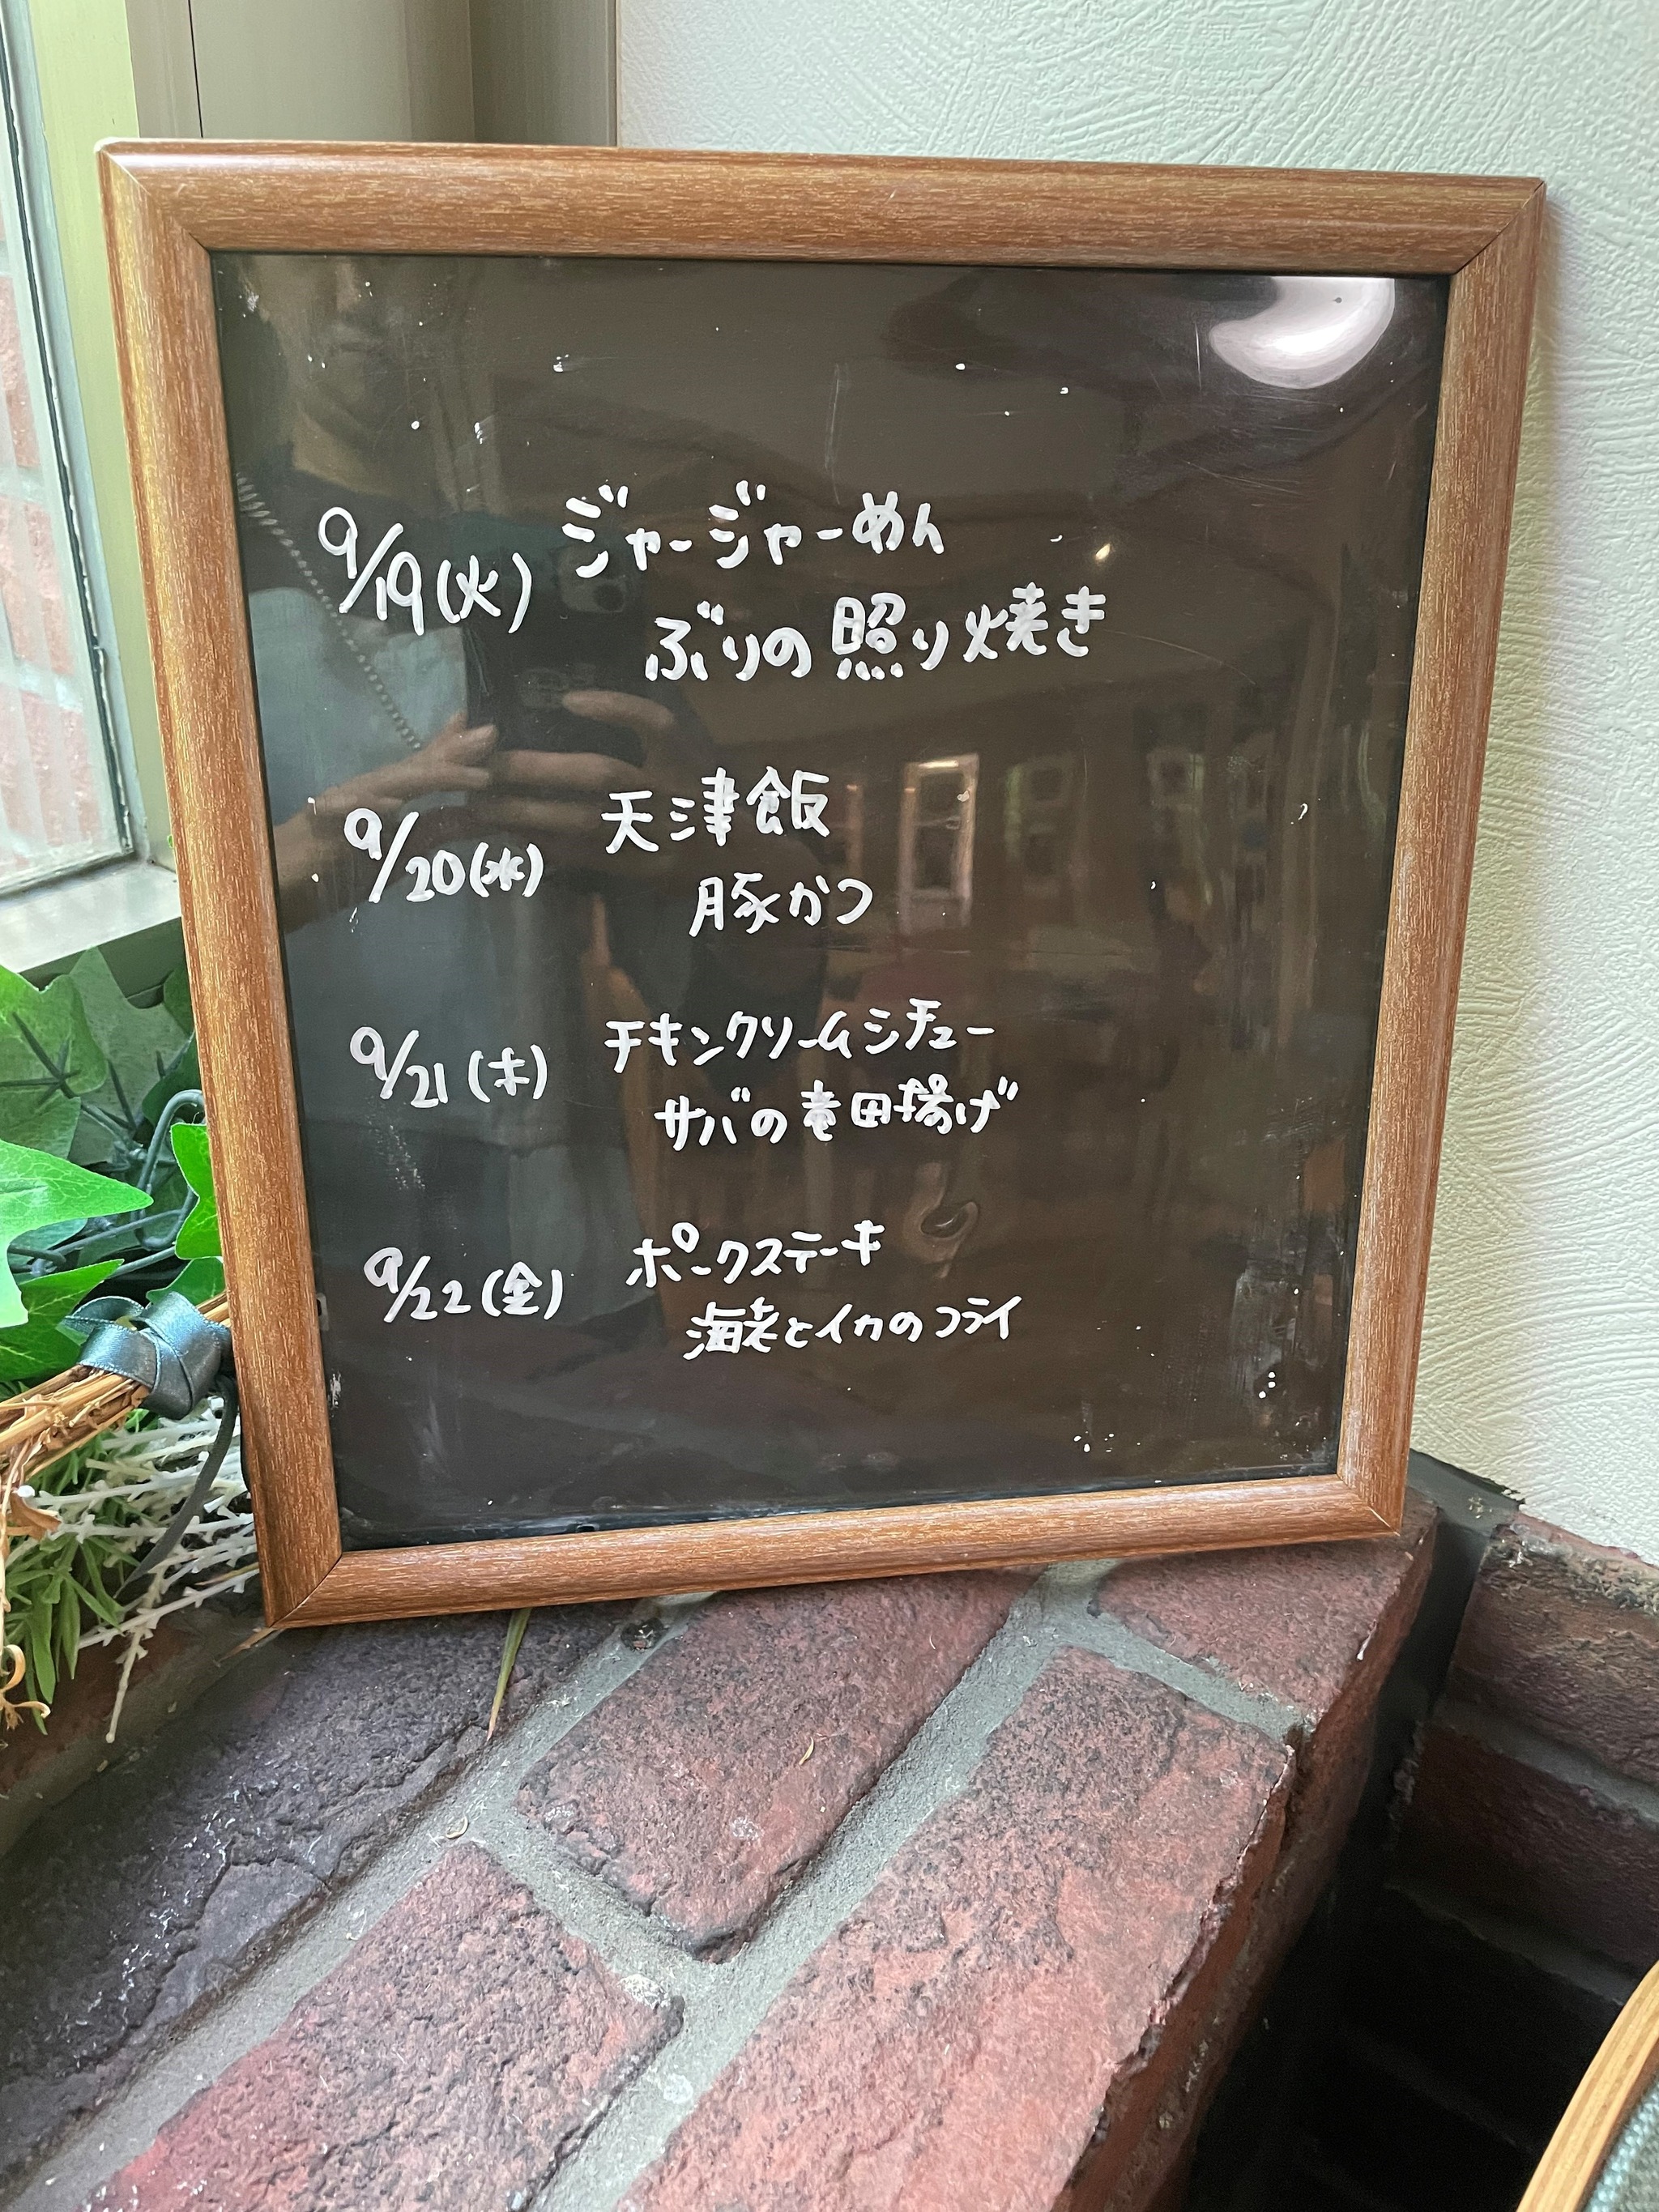 9/19(火) ジャージャーめん
ぶりの照り焼き
9/20(水) 天津飯
豚かつ
9/21(木) チキンクリームシチュー
サバの竜田揚げ
9/22(金) ポークステーキ
海老とイカのフライ